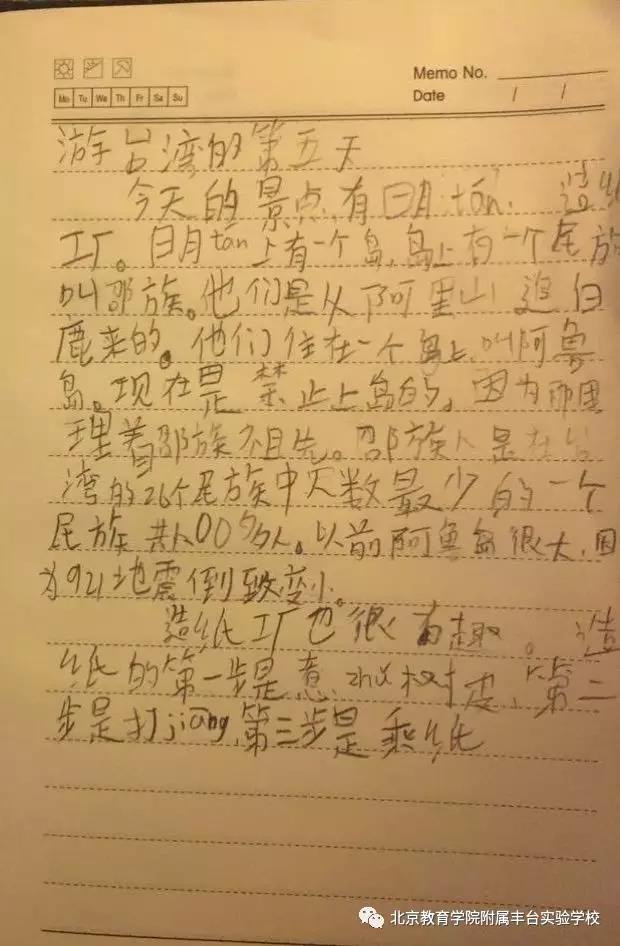 Memo No.
Mo Tu We Th Fr Sa Su
Date / /
游台湾的第五天
今天的景点有日月tán、造纸
工厂。日月tán上有一个岛,岛上有一个民族
叫邵族。他们是从阿里山追白
鹿来的。他们住在一个岛上,叫阿鲁
岛。现在是禁止上岛的,因为那里
埋着邵族祖先。邵族人是在台
湾的26个民族中人数最少的一个
民族 共100多人。以前阿鲁岛很大,因
为921地震倒致变小。
造纸工厂也很有趣。造
纸的第一步是 zhǔ树皮,第二
步是打jiāng,第三步是 纸
北京教育学院附属丰台实验学校